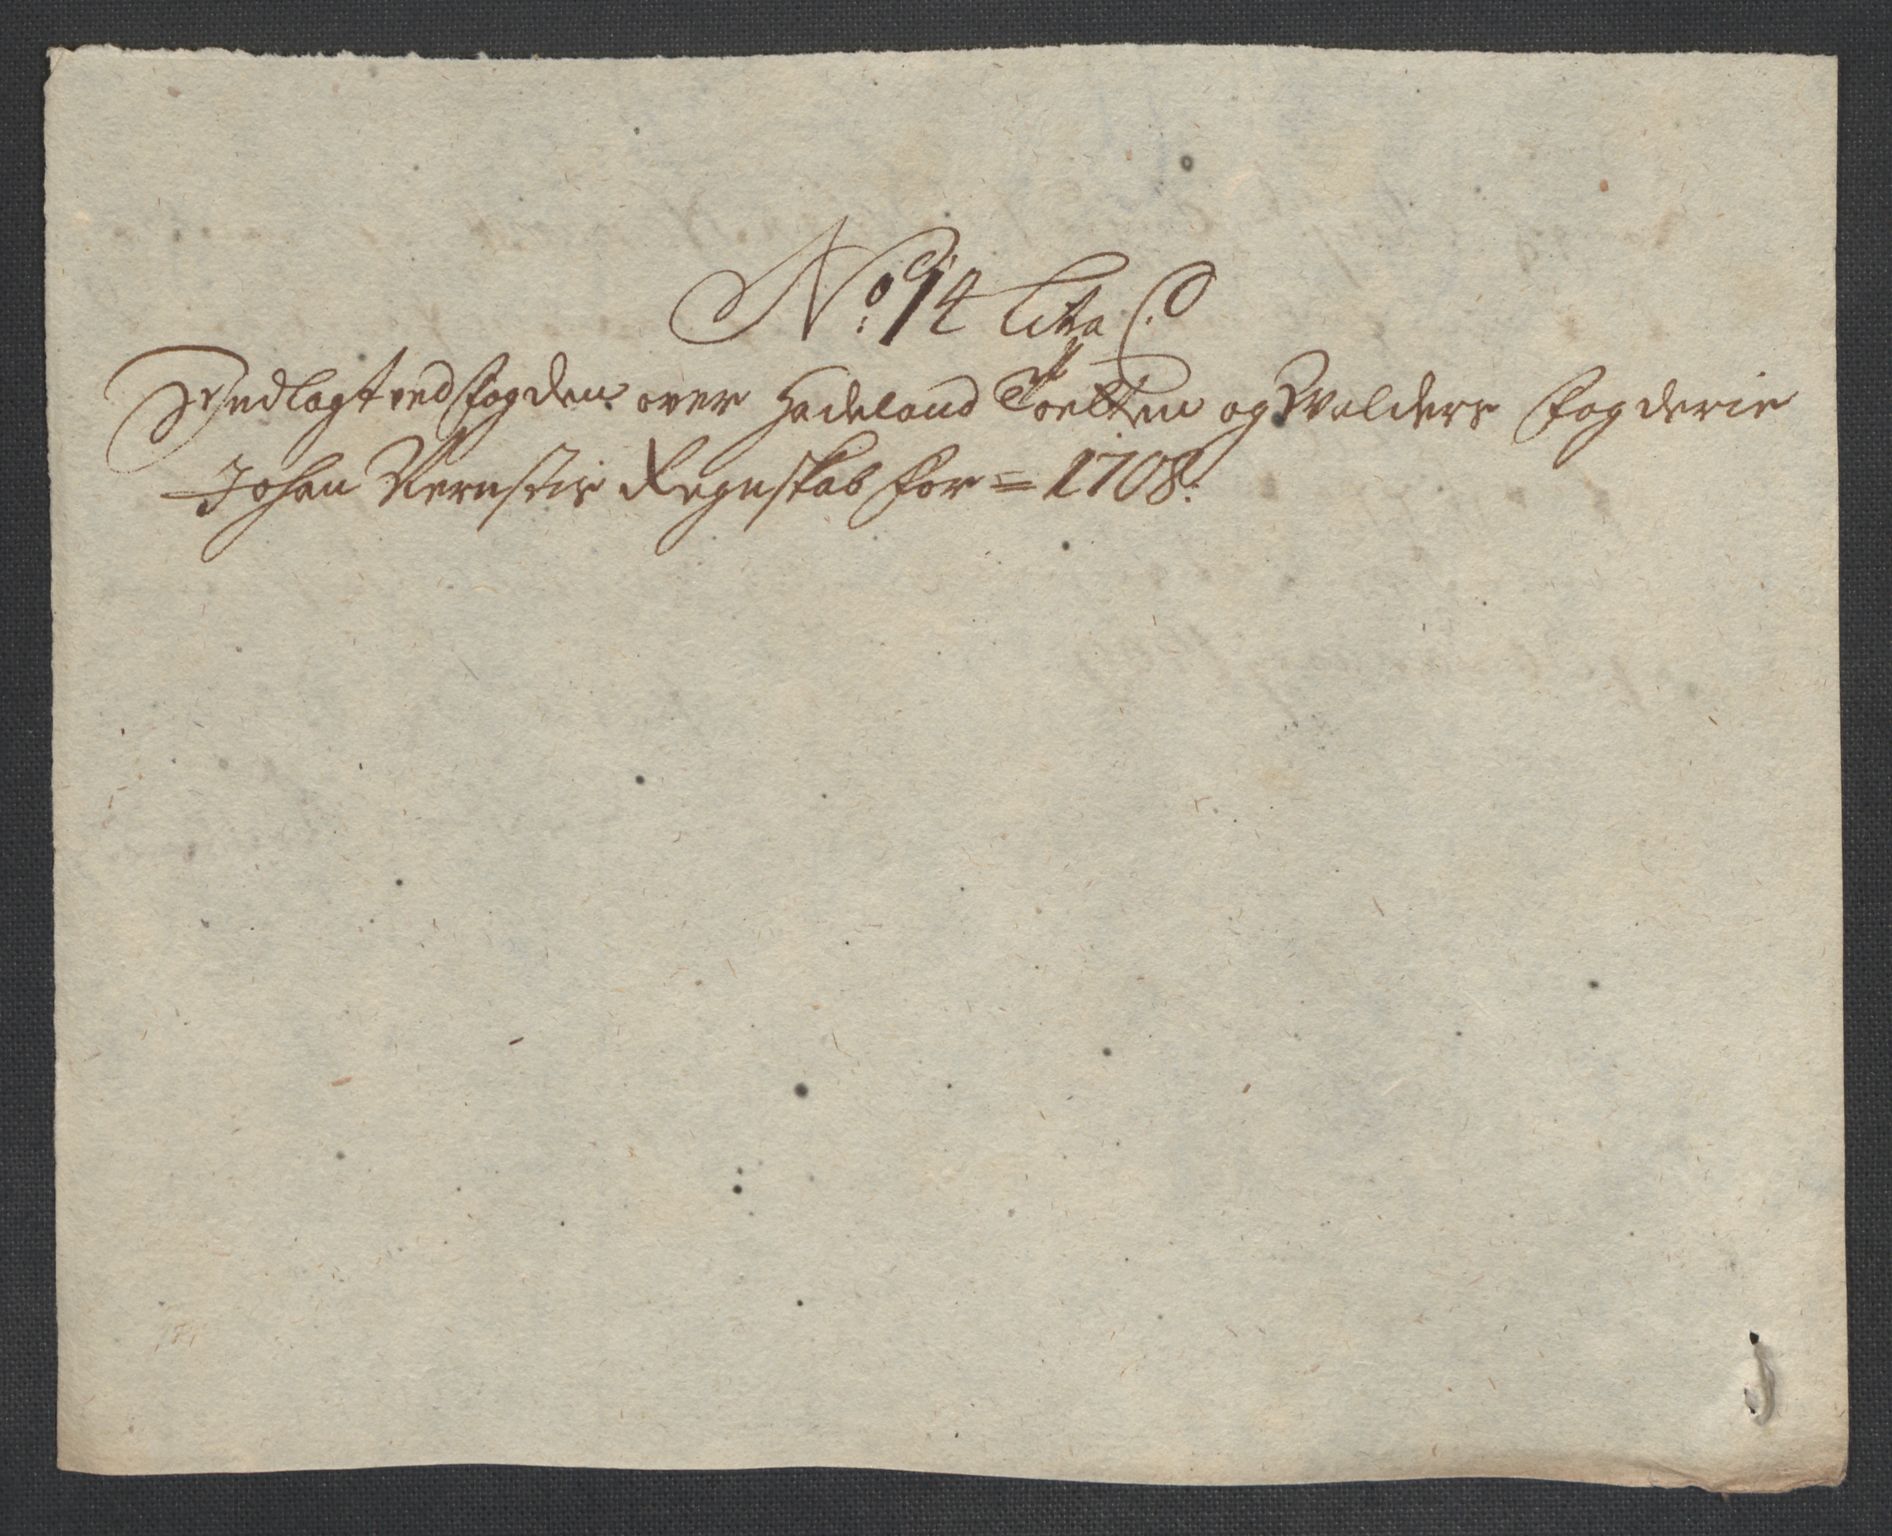 No: 14 Litra C.
Indlagt ved Fogden over Hadeland Toetten og Walders Fogderie
Johan Rernstis Regnskab for = 1708.